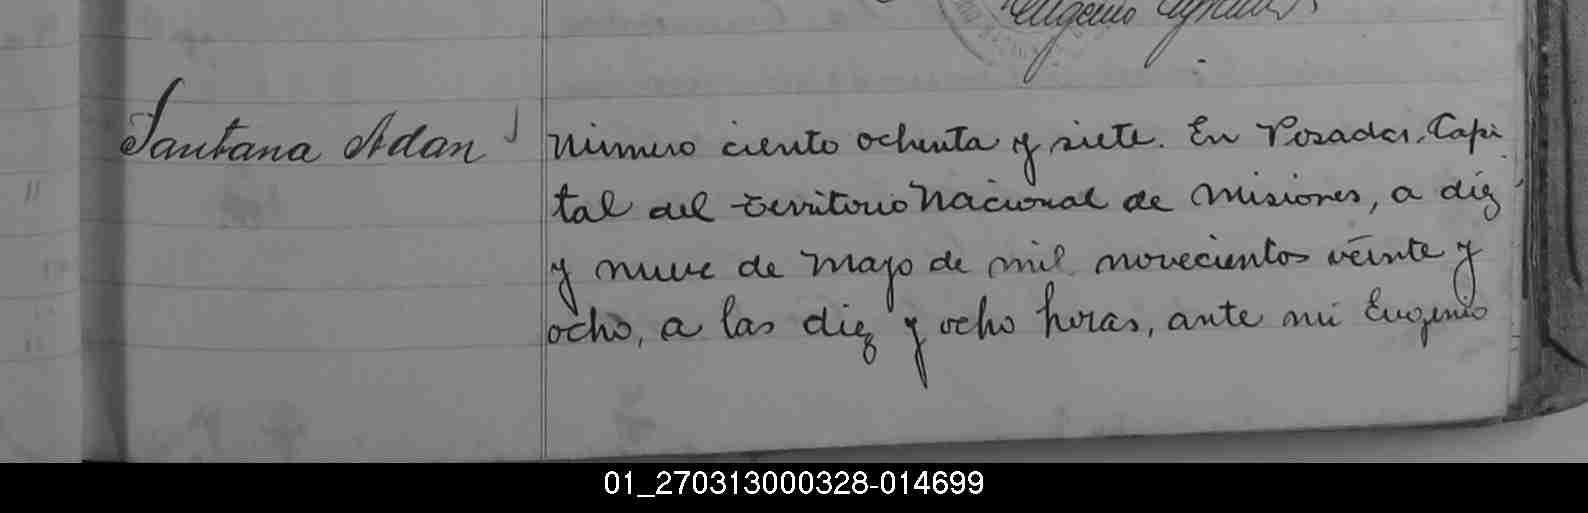 Eugenio
Santana Adan
Número ciento ochenta y siete. En Posadas, Capi
tal del territorio Nacional de Misiones, a diez
y nueve de Mayo de mil novecientos veinte y
ocho, a las diez y ocho horas, ante mi Eugenio
01_270313000328-014699